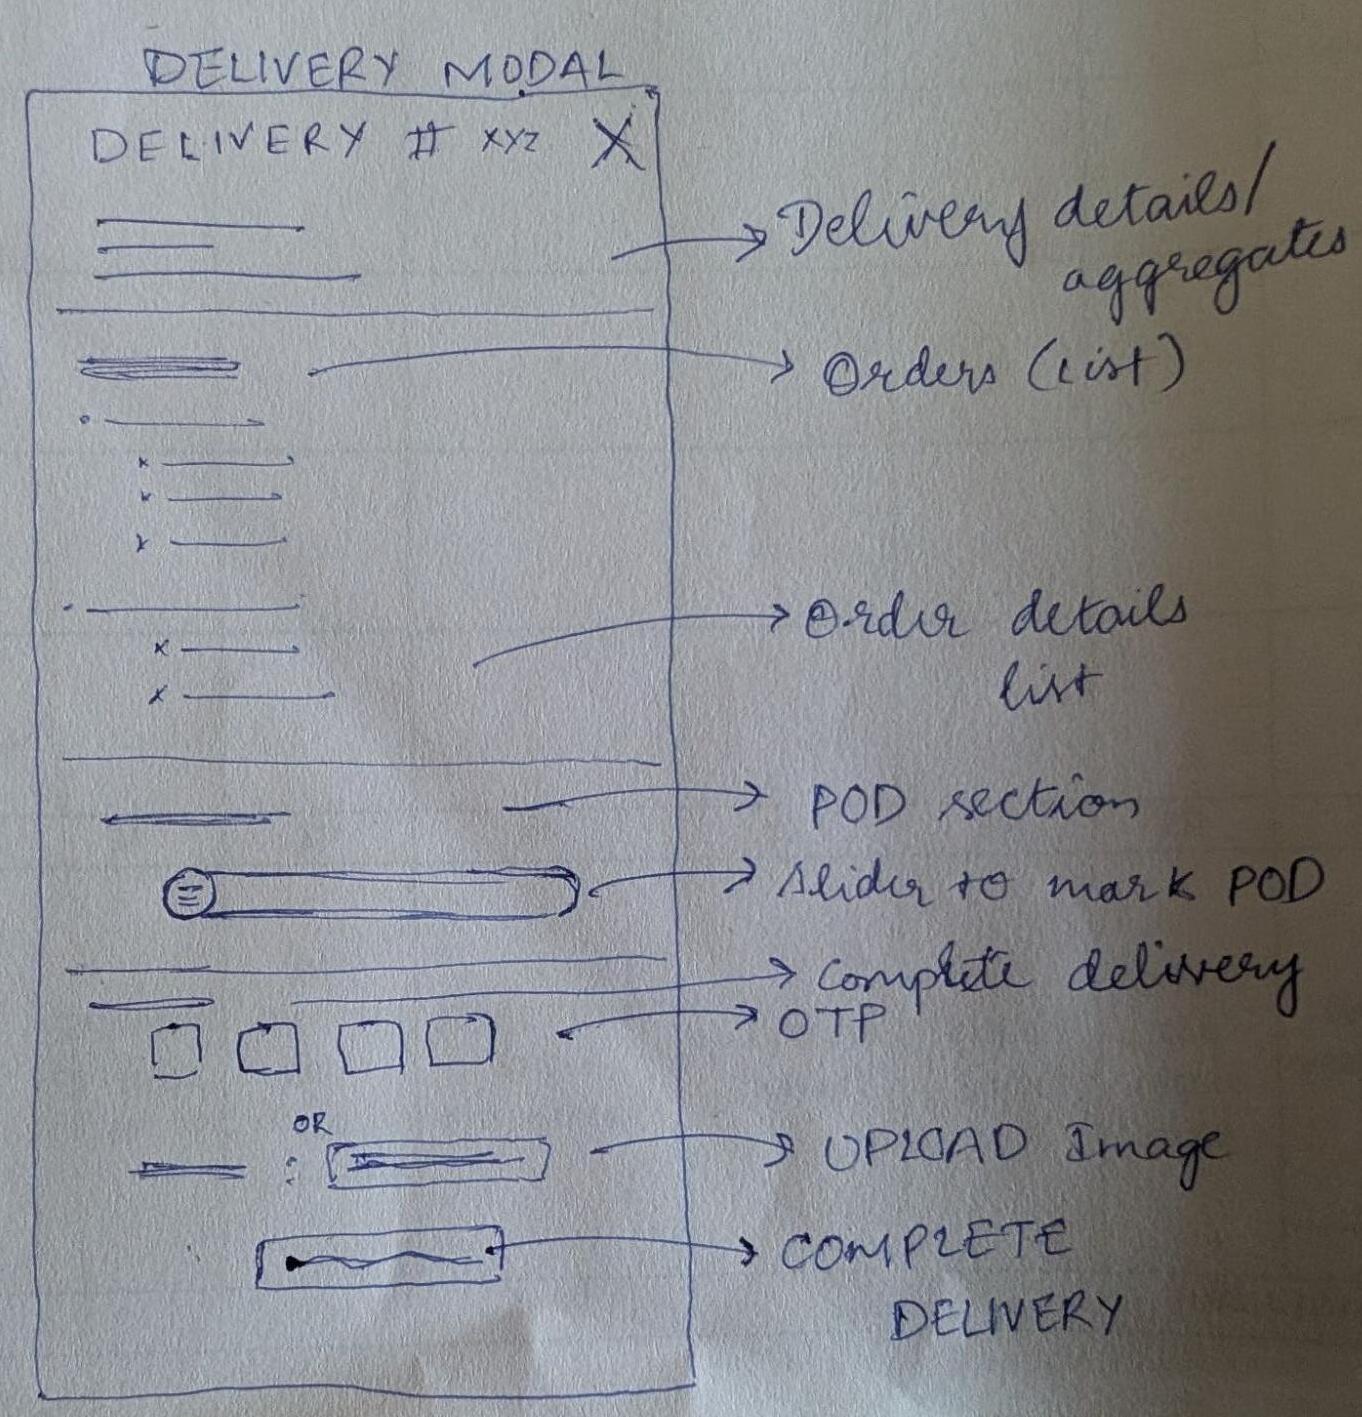 DELIVERY MODAL
DELIVERY # XYZ X
Delivery details/
aggregates
Orders (List)
Order details
list
POD section
Slider to mark POD
Complete delivery
OTP
OR
UPLOAD Image
COMPLETE
DELIVERY